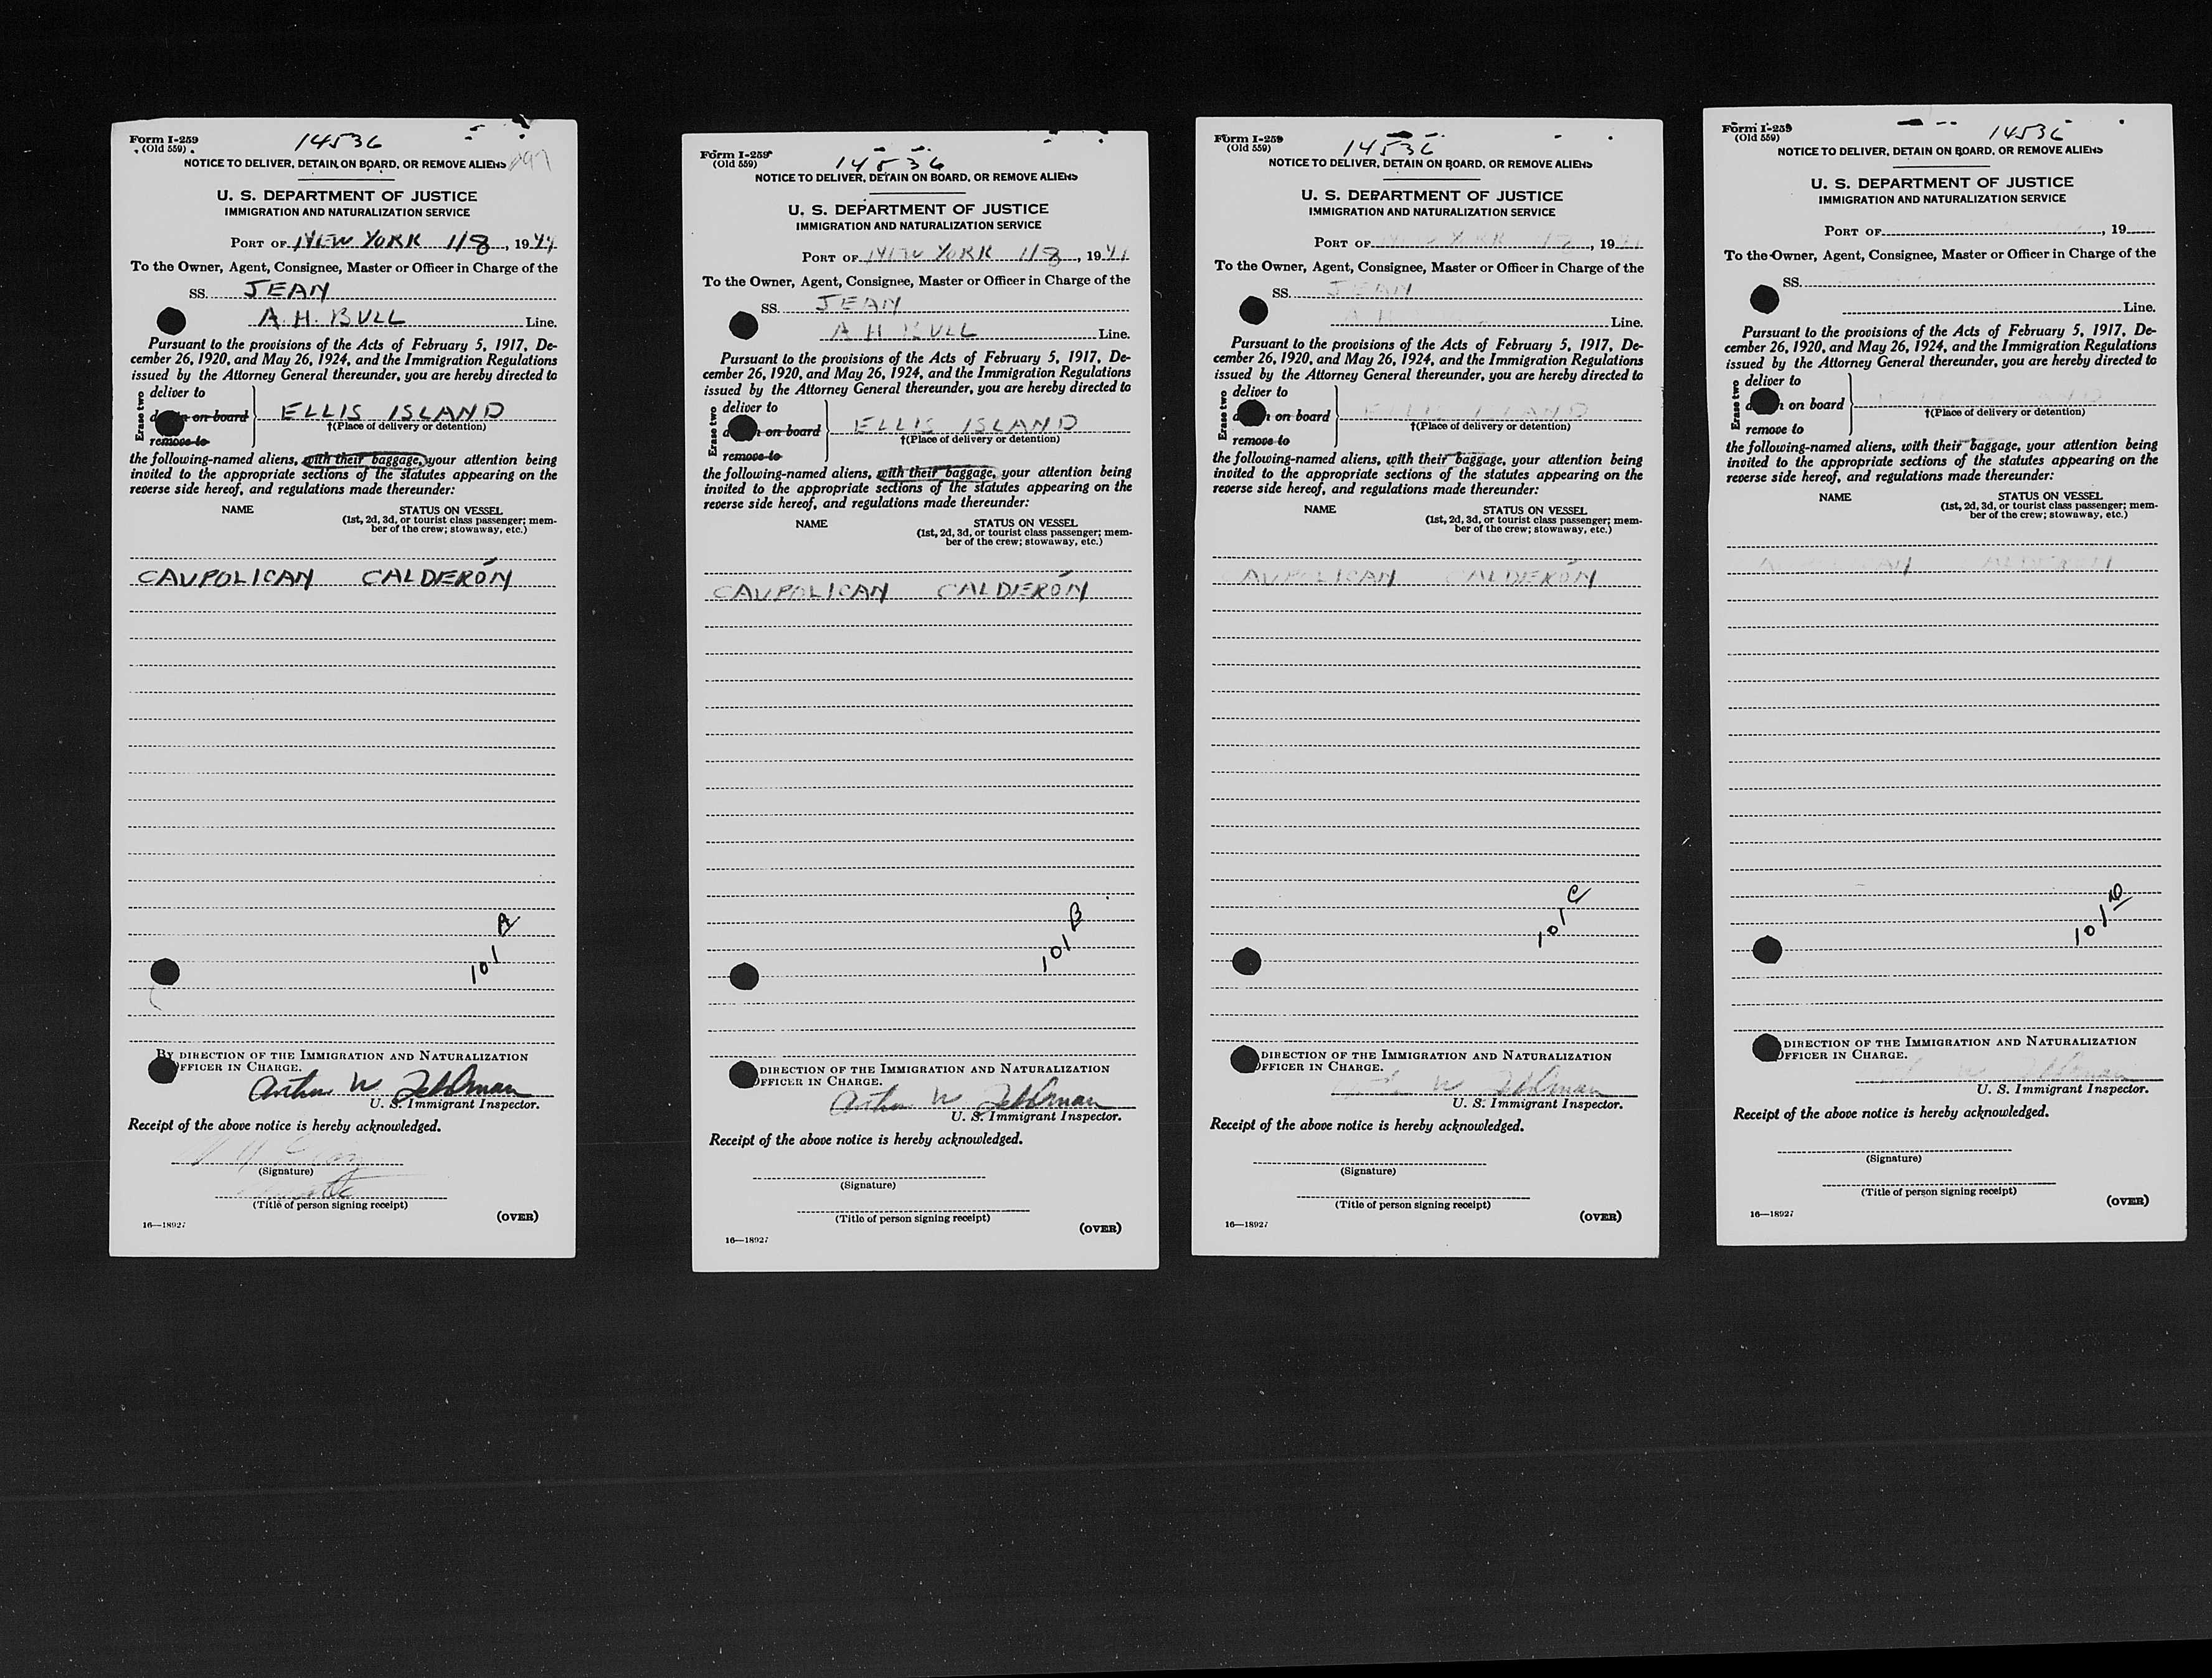 Form I-259
(Old 559)
14536
NOTICE TO DELIVER, DETAIN ON BOARD, OR REMOVE ALIENS
U. S. DEPARTMENT OF JUSTICE
IMMIGRATION AND NATURALIZATION SERVICE
PORT OF NEW YORK 1/8, 1944
To the Owner, Agent, Consignee, Master or Officer in Charge of the
SS. JEAN
A. H. BULL Line.
Pursuant to the provisions of the Acts of February 5, 1917, De-
cember 26, 1920, and May 26, 1924, and the Immigration Regulations
issued by the Attorney General thereunder, you are hereby directed to
Erase two
deliver to
on board
remove to
ELLIS ISLAND
†(Place of delivery or detention)
the following-named aliens, with their baggage, your attention being
invited to the appropriate sections of the statutes appearing on the
reverse side hereof, and regulations made thereunder:
NAME STATUS ON VESSEL
(1st, 2d, 3d, or tourist class passenger; mem-
ber of the crew; stowaway, etc.)
CAUPOLICAN CALDERÓN
101 A
By DIRECTION OF THE IMMIGRATION AND NATURALIZATION
OFFICER IN CHARGE.
Arthur W
U. S. Immigrant Inspector.
Receipt of the above notice is hereby acknowledged.
(Signature)
(Title of person signing receipt)
16—18927
(OVER)
Form I-259
(Old 559)
14536
NOTICE TO DELIVER, DETAIN ON BOARD, OR REMOVE ALIENS
U. S. DEPARTMENT OF JUSTICE
IMMIGRATION AND NATURALIZATION SERVICE
PORT OF NEW YORK 1/8, 1944
To the Owner, Agent, Consignee, Master or Officer in Charge of the
SS. JEAN
A H BULL Line.
Pursuant to the provisions of the Acts of February 5, 1917, De-
cember 26, 1920, and May 26, 1924, and the Immigration Regulations
issued by the Attorney General thereunder, you are hereby directed to
Erase two
deliver to
on board
remove to
ELLIS ISLAND
†(Place of delivery or detention)
the following-named aliens, with their baggage, your attention being
invited to the appropriate sections of the statutes appearing on the
reverse side hereof, and regulations made thereunder:
NAME STATUS ON VESSEL
(1st, 2d, 3d, or tourist class passenger; mem-
ber of the crew; stowaway, etc.)
CAUPOLICAN CALDERÓN
101 B
DIRECTION OF THE IMMIGRATION AND NATURALIZATION
OFFICER IN CHARGE.
Arthur W
U. S. Immigrant Inspector.
Receipt of the above notice is hereby acknowledged.
(Signature)
(Title of person signing receipt)
16—18927
(OVER)
Form I-259
(Old 559)
14536
NOTICE TO DELIVER, DETAIN ON BOARD, OR REMOVE ALIENS
U. S. DEPARTMENT OF JUSTICE
IMMIGRATION AND NATURALIZATION SERVICE
PORT OF , 19
To the Owner, Agent, Consignee, Master or Officer in Charge of the
SS. JEAN
Line.
Pursuant to the provisions of the Acts of February 5, 1917, De-
cember 26, 1920, and May 26, 1924, and the Immigration Regulations
issued by the Attorney General thereunder, you are hereby directed to
Erase two
deliver to
on board
remove to
ELLIS ISLAND
†(Place of delivery or detention)
the following-named aliens, with their baggage, your attention being
invited to the appropriate sections of the statutes appearing on the
reverse side hereof, and regulations made thereunder:
NAME STATUS ON VESSEL
(1st, 2d, 3d, or tourist class passenger; mem-
ber of the crew; stowaway, etc.)
CAUPOLICAN CALDERÓN
101 C
DIRECTION OF THE IMMIGRATION AND NATURALIZATION
OFFICER IN CHARGE.
U. S. Immigrant Inspector.
Receipt of the above notice is hereby acknowledged.
(Signature)
(Title of person signing receipt)
16—18927
(OVER)
Form I-259
(Old 559)
14536
NOTICE TO DELIVER, DETAIN ON BOARD, OR REMOVE ALIENS
U. S. DEPARTMENT OF JUSTICE
IMMIGRATION AND NATURALIZATION SERVICE
PORT OF , 19
To the Owner, Agent, Consignee, Master or Officer in Charge of the
SS.
Line.
Pursuant to the provisions of the Acts of February 5, 1917, De-
cember 26, 1920, and May 26, 1924, and the Immigration Regulations
issued by the Attorney General thereunder, you are hereby directed to
Erase two
deliver to
on board
remove to
†(Place of delivery or detention)
the following-named aliens, with their baggage, your attention being
invited to the appropriate sections of the statutes appearing on the
reverse side hereof, and regulations made thereunder:
NAME STATUS ON VESSEL
(1st, 2d, 3d, or tourist class passenger; mem-
ber of the crew; stowaway, etc.)
101 D
DIRECTION OF THE IMMIGRATION AND NATURALIZATION
OFFICER IN CHARGE.
U. S. Immigrant Inspector.
Receipt of the above notice is hereby acknowledged.
(Signature)
(Title of person signing receipt)
16—18927
(OVER)